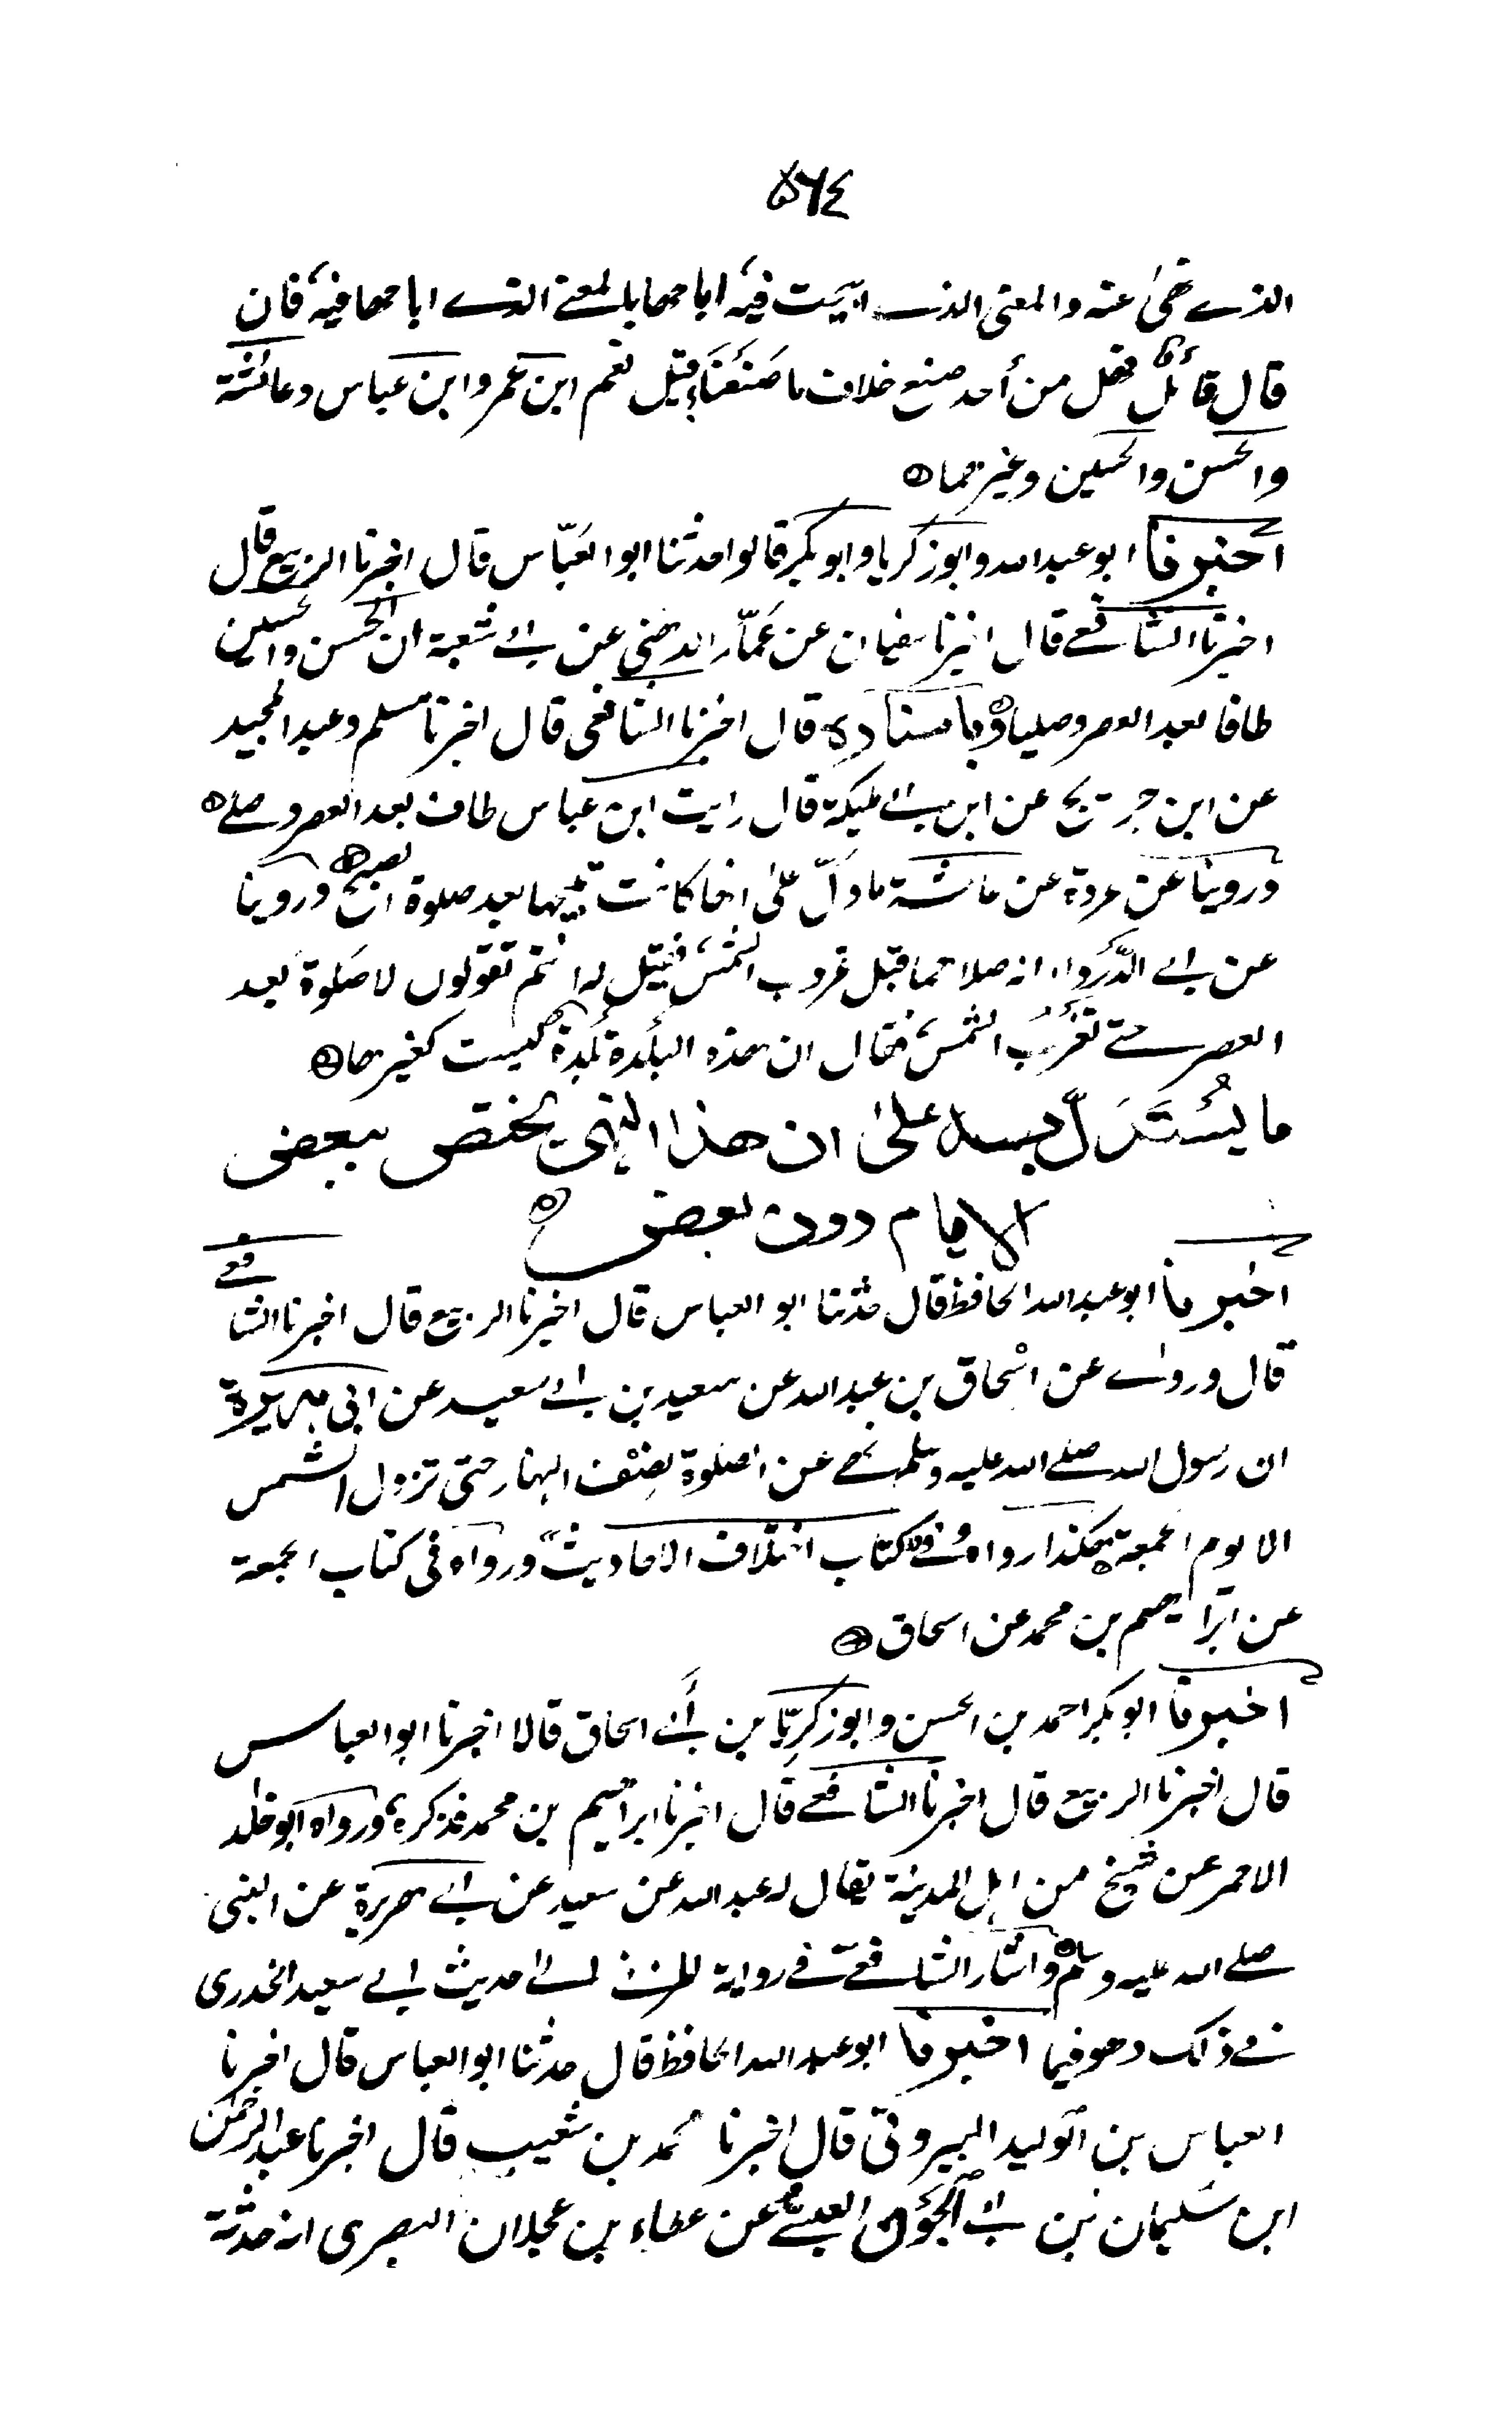 ٥٦٤
الذي نهى عنه والمعنى الذي ابيحت فيه اباحها بالمعنى الذي اباحها فيه فان
قال قائل فهل من أحد صنع خلاف ما صنعنا قيل نعم ابن عمر وابن عباس وعائشة
والحسن والحسين وغيرهما
اخبرنا ابو عبد الله وابو زكريا وابو بكر قالوا حدثنا ابو العباس قال اخبرنا الربيع قال
اخبرنا الشافعي قال اخبرنا سفيان عن عمار الدهني عن ابي شعبة ان الحسن والحسين
طافا بعد العصر وصليا وباسناده قال اخبرنا الشافعي قال اخبرنا مسلم وعبد المجيد
عن ابن جريج عن ابن ابي مليكة قال رايت ابن عباس طاف بعد العصر وصلى
وروينا عن عروة عن عائشة ما دل على انها كانت بعد صلوة الصبح وروينا
عن ابي الدرداء انه صلاهما قبل غروب الشمس فقيل له انتم تقولون لا صلوة بعد
العصر حتى تغرب الشمس فقال ان هذه البلدة بلدة ليست كغيرها
ما يستدل به على ان هذا النهي يختص ببعض
الايام دون بعض
اخبرنا ابو عبد الله الحافظ قال حدثنا ابو العباس قال اخبرنا الربيع قال اخبرنا الشافعي
قال وروى عن اسحاق بن عبد الله عن سعيد بن ابي سعيد عن ابي هريرة
ان رسول الله صلى الله عليه وسلم نهى عن الصلوة نصف النهار حتى تزول الشمس
الا يوم الجمعة هكذا رواه في كتاب اختلاف الاحاديث ورواه في كتاب الجمعة
عن ابراهيم بن محمد عن اسحاق
اخبرنا ابو بكر احمد بن الحسن وابو زكريا بن أبي اسحاق قالا اخبرنا ابو العباس
قال اخبرنا الربيع قال اخبرنا الشافعي قال اخبرنا ابراهيم بن محمد فذكره ورواه ابو خلد
الاحمر عن شيخ من اهل المدينة يقال له عبد الله عن سعيد عن ابي هريرة عن النبي
صلى الله عليه وسلم واشار الشافعي في رواية المزني الى حديث ابي سعيد الخدري
في ذلك وهو فيما اخبرنا ابو عبد الله الحافظ قال حدثنا ابو العباس قال اخبرنا
العباس بن الوليد البيروتي قال اخبرنا محمد بن شعيب قال اخبرنا عبد الرحمن
ابن سليمان بن ابي الجون العبسي عن عطاء بن عجلان البصري انه حدثه